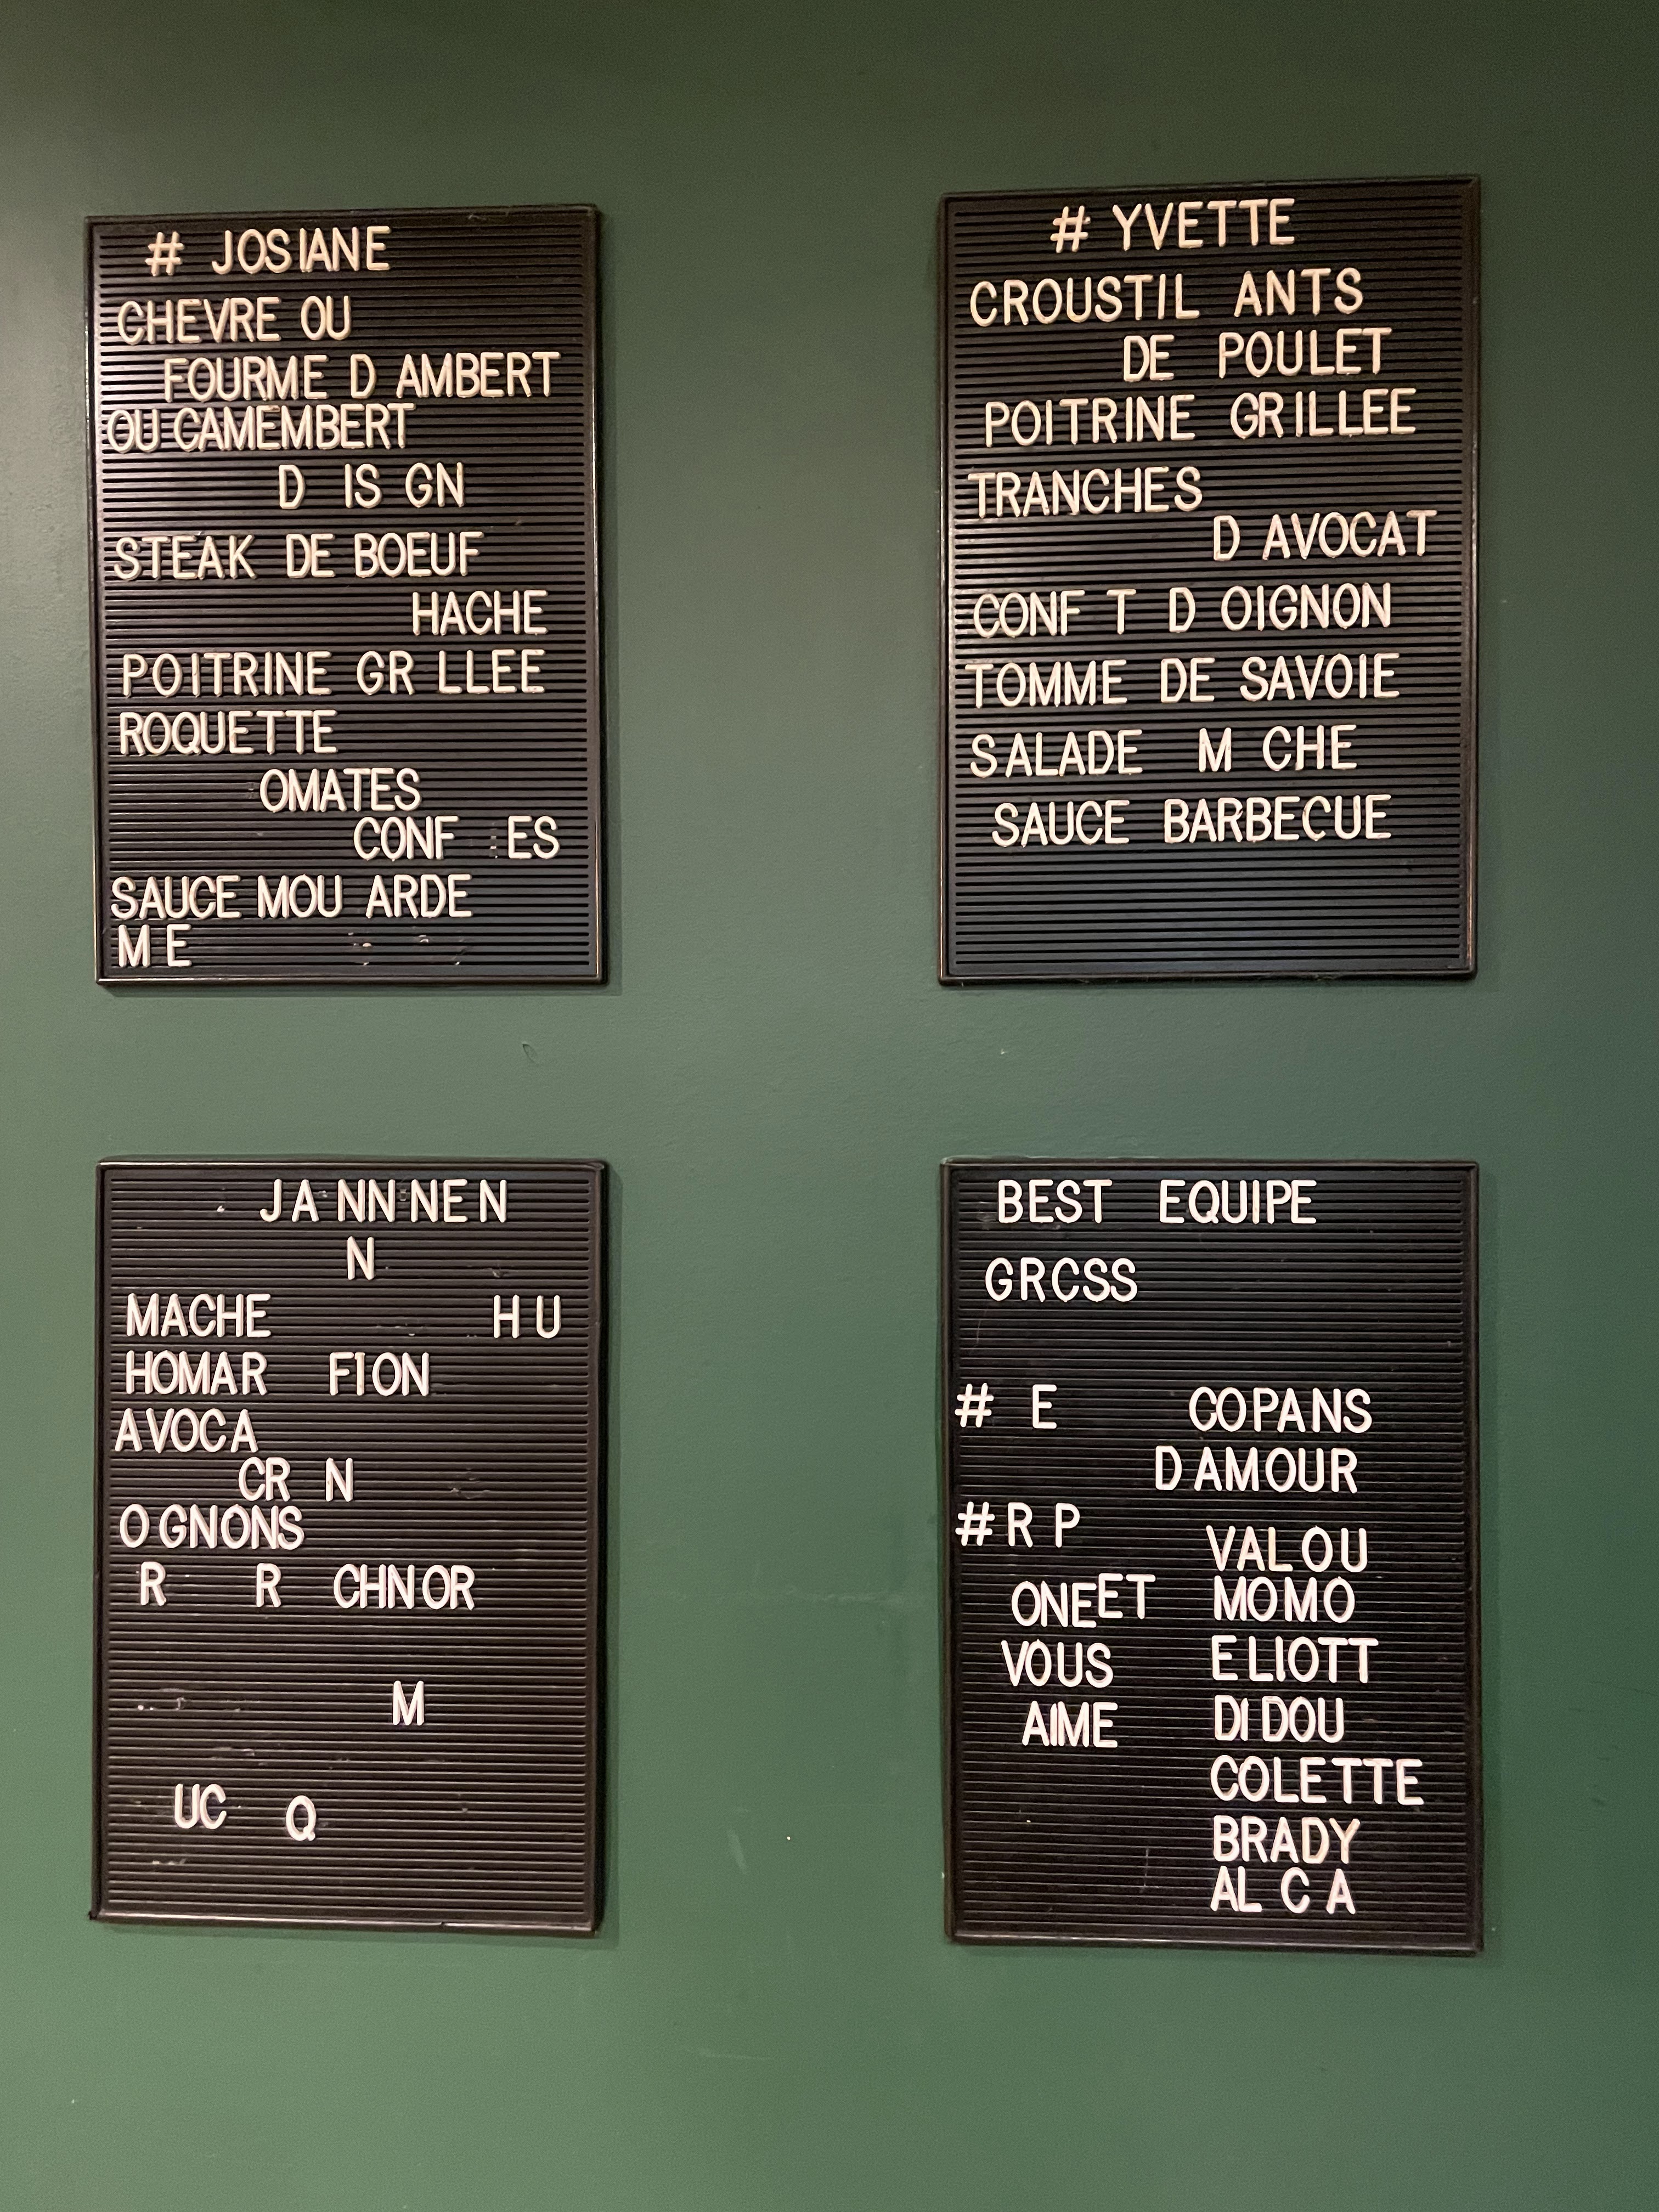 # JOSIANE
CHEVRE OU
FOURME D AMBERT
OU CAMEMBERT
D IS GN
STEAK DE BOEUF
HACHE
POITRINE GR LLEE
ROQUETTE
OMATES
CONF ES
SAUCE MOU ARDE
M E
# YVETTE
CROUSTIL ANTS
DE POULET
POITRINE GRILLEE
TRANCHES
D AVOCAT
CONF T D OIGNON
TOMME DE SAVOIE
SALADE M CHE
SAUCE BARBECUE
JA NNNNEN
N
MACHE H U
HOMAR FION
AVOCA
CR N
O GNONS
R R CHNOR
M
UC Q
BEST EQUIPE
GRCSS
# E COPANS
D AMOUR
# R P
VALOU
ONEEET MOMO
VOUS ELIOTT
AIME DIDOU
COLETTE
BRADY
AL C A